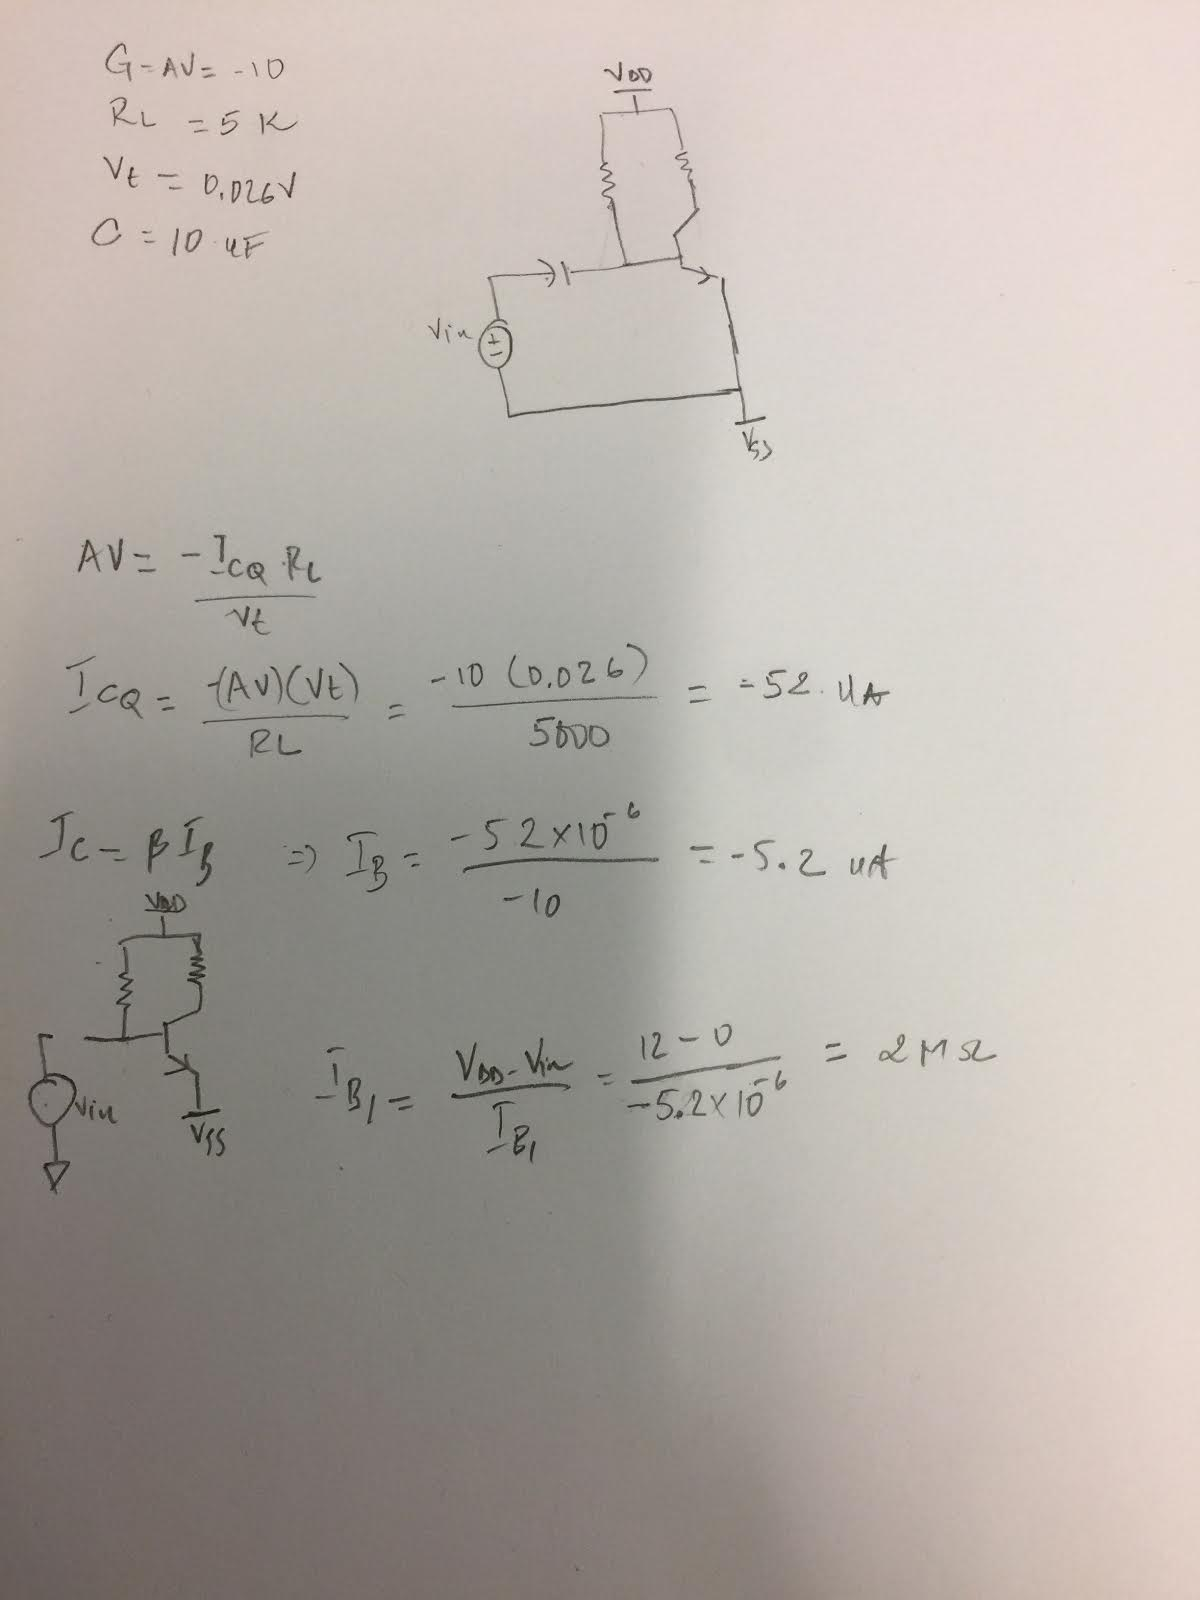 G = AV = -10
RL = 5 K
Vt = 0.026V
C = 10 uF
VDD
Vin
+
-
VSS
AV = -ICQ RL / Vt
ICQ = -(AV)(Vt) / RL = -10 (0.026) / 5000 = -52 uA
IC = β IB => IB = -52 x 10^-6 / -10 = -5.2 uA
VDD
Vin
VSS
IB1 = VDD - Vin / IB1 = 12 - 0 / -5.2 x 10^-6 = 2 M Ω